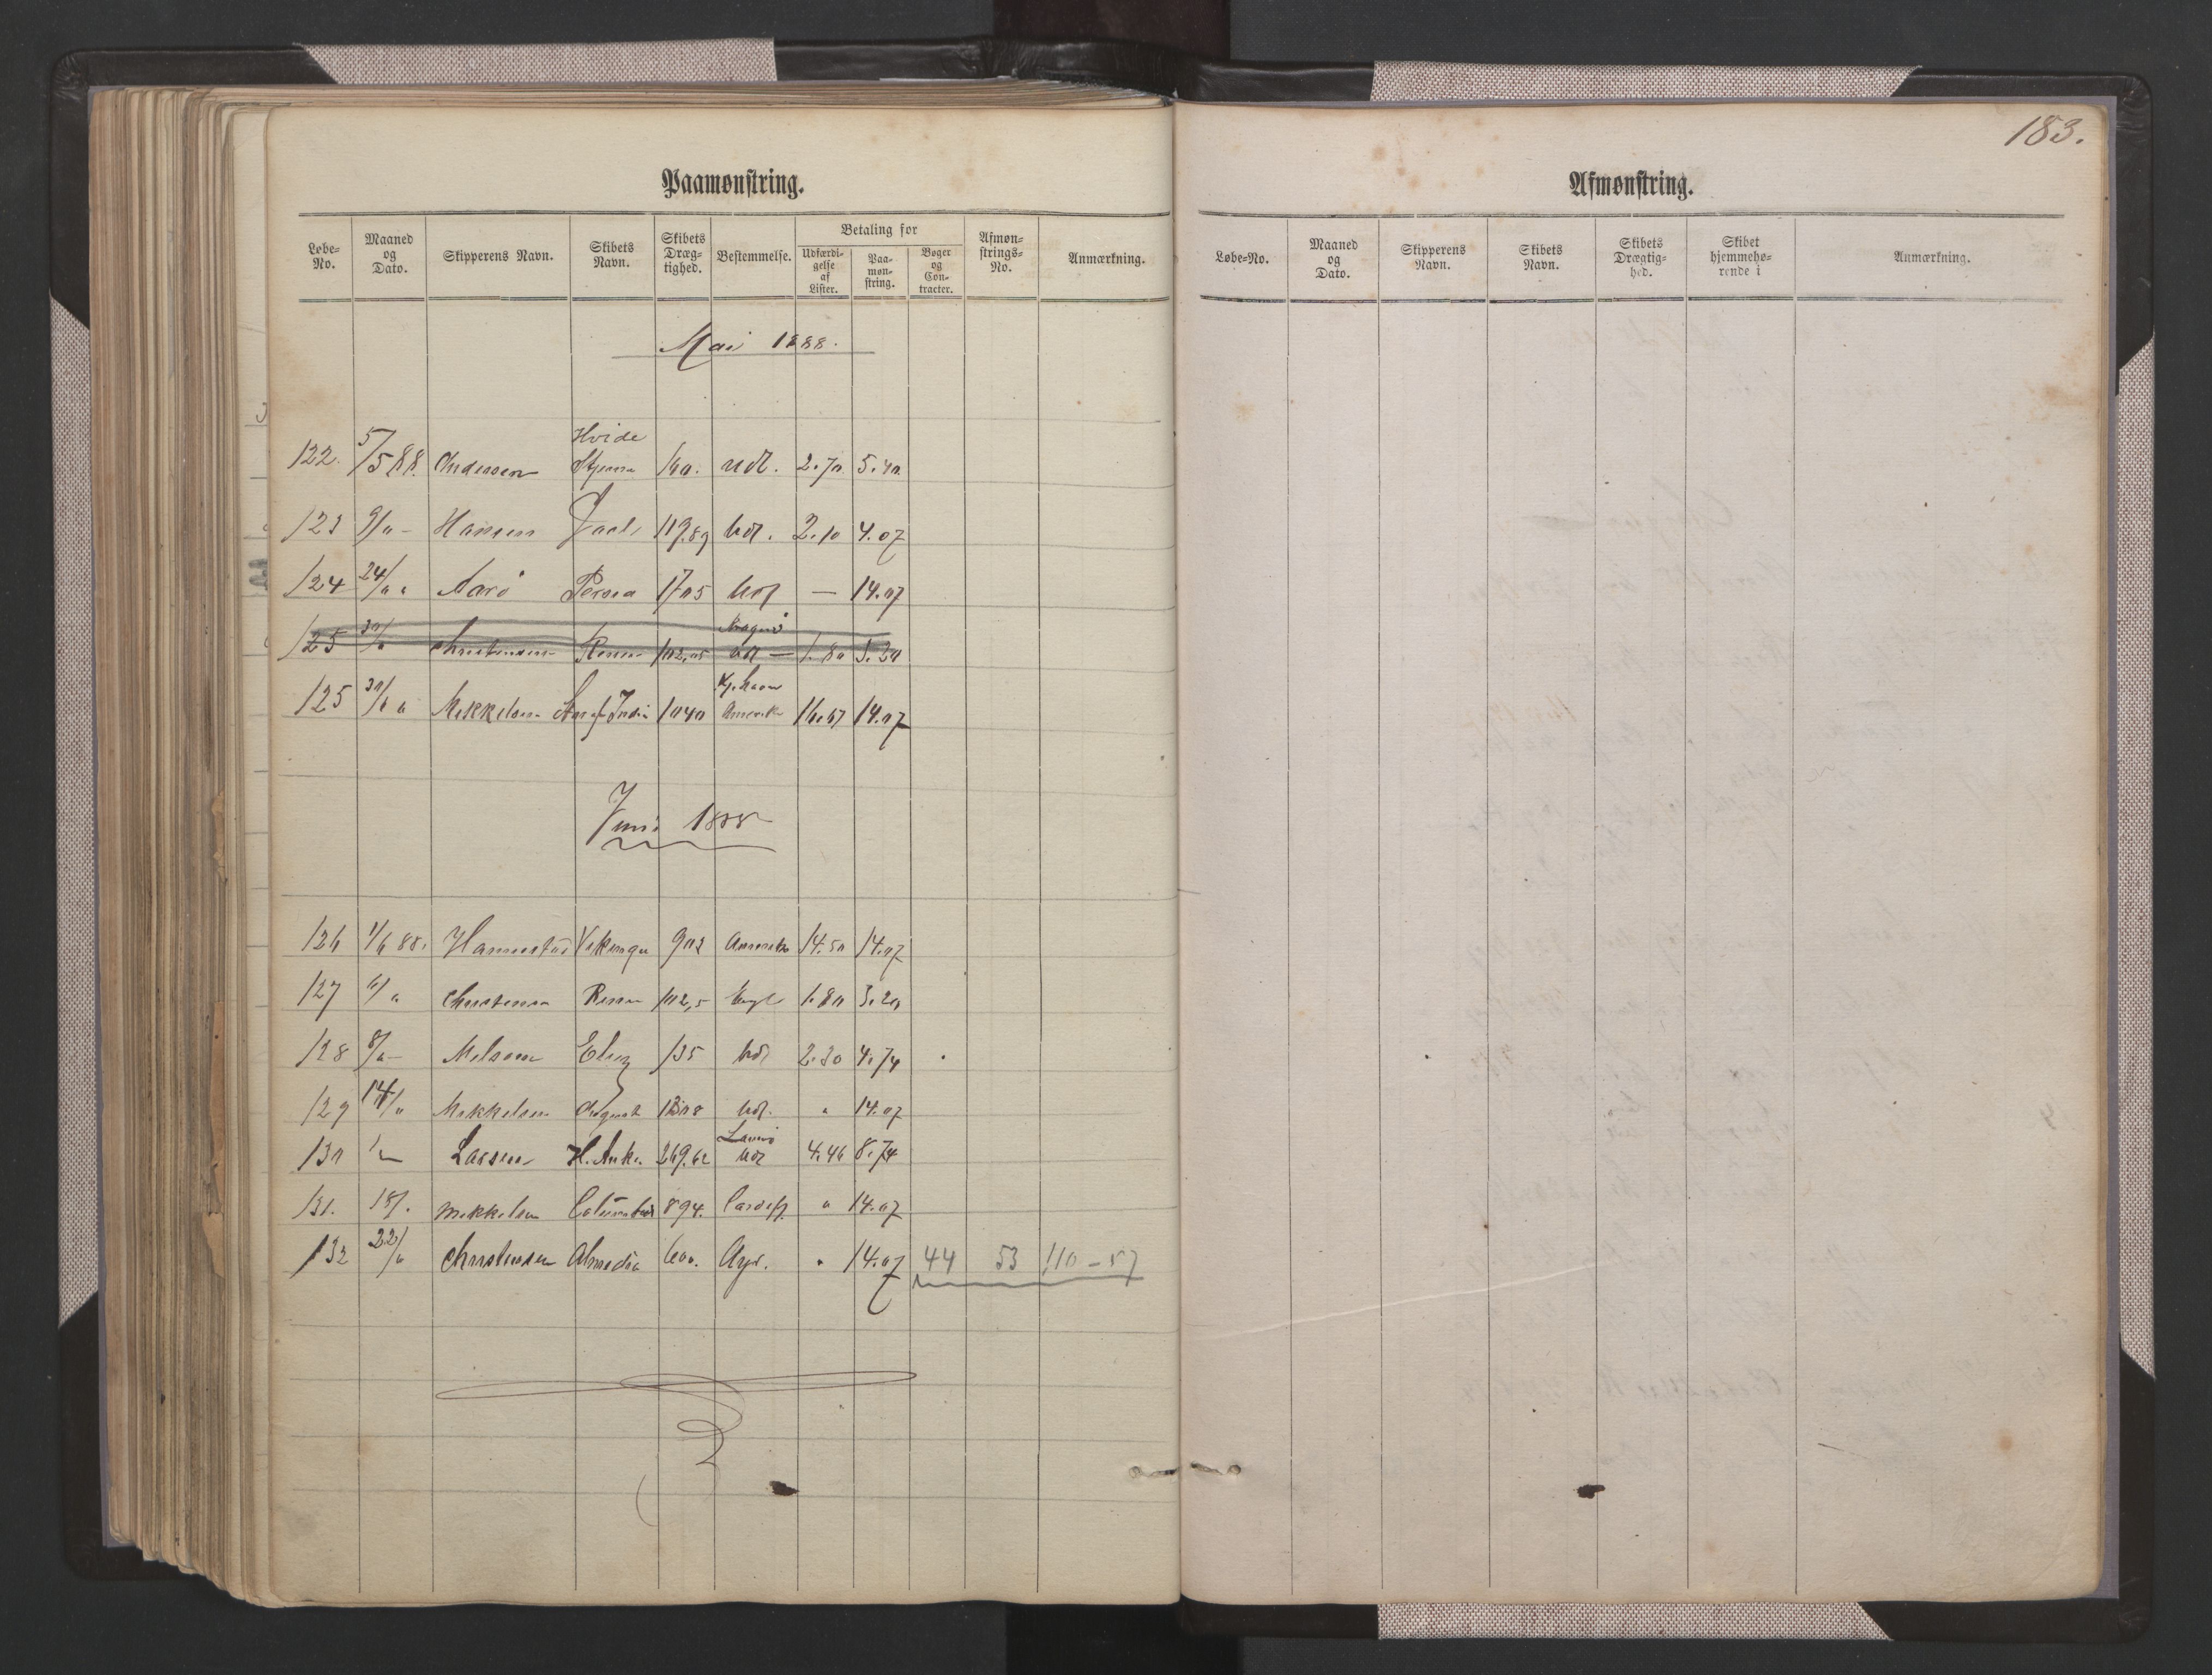 183.
Paamønstring.
Løbe-No. Maaned og Dato. Skipperens Navn. Skibets Navn. Skibets Dræg-tighed. Bestemmelse. Betaling for Udfærdi-gelse af Lister. Paa-møn-string. Bøger og Con-tracter. Afmøn-strings-No. Anmærkning.
Mai 1888.
Hvide
122. 5/5 88. Andersen Stjerna 160. Udl. 2.70 5.40
123 9/" - Hansen 119.89 Udl. 2.10 4.07
124 24/" " Aarö Persea 1705 Udl — 14.07
125 30/" Christensen 102,05 Udl — 1.80 3.20
125 30/" " Mikkelsen 1040 Amerika 16.67 14.07
Juni 1888
126 1/6 88. Vikingen 902 Amerika 14.50 14.07
127 6/ " Christensen 102,5 Engl 1.80 3.20
128 8/" - Melsom 135 Udl 2.30 4.74
129 14/" Mikkelsen August 1308 Udl. " 14.07
130 Larsen 269.62 Udl 4.46 8.74
131. 18/. Mikkelsen Columbus 894. Cardiff " 14.07
132 22/" Christensen Almedia 600. Ayr. " 14.07 44 53 110 - 57
Afmønstring.
Løbe-No. Maaned og Dato. Skipperens Navn. Skibets Navn. Skibets Drægtig-hed. Skibet hjemmehø-rende i Anmærkning.